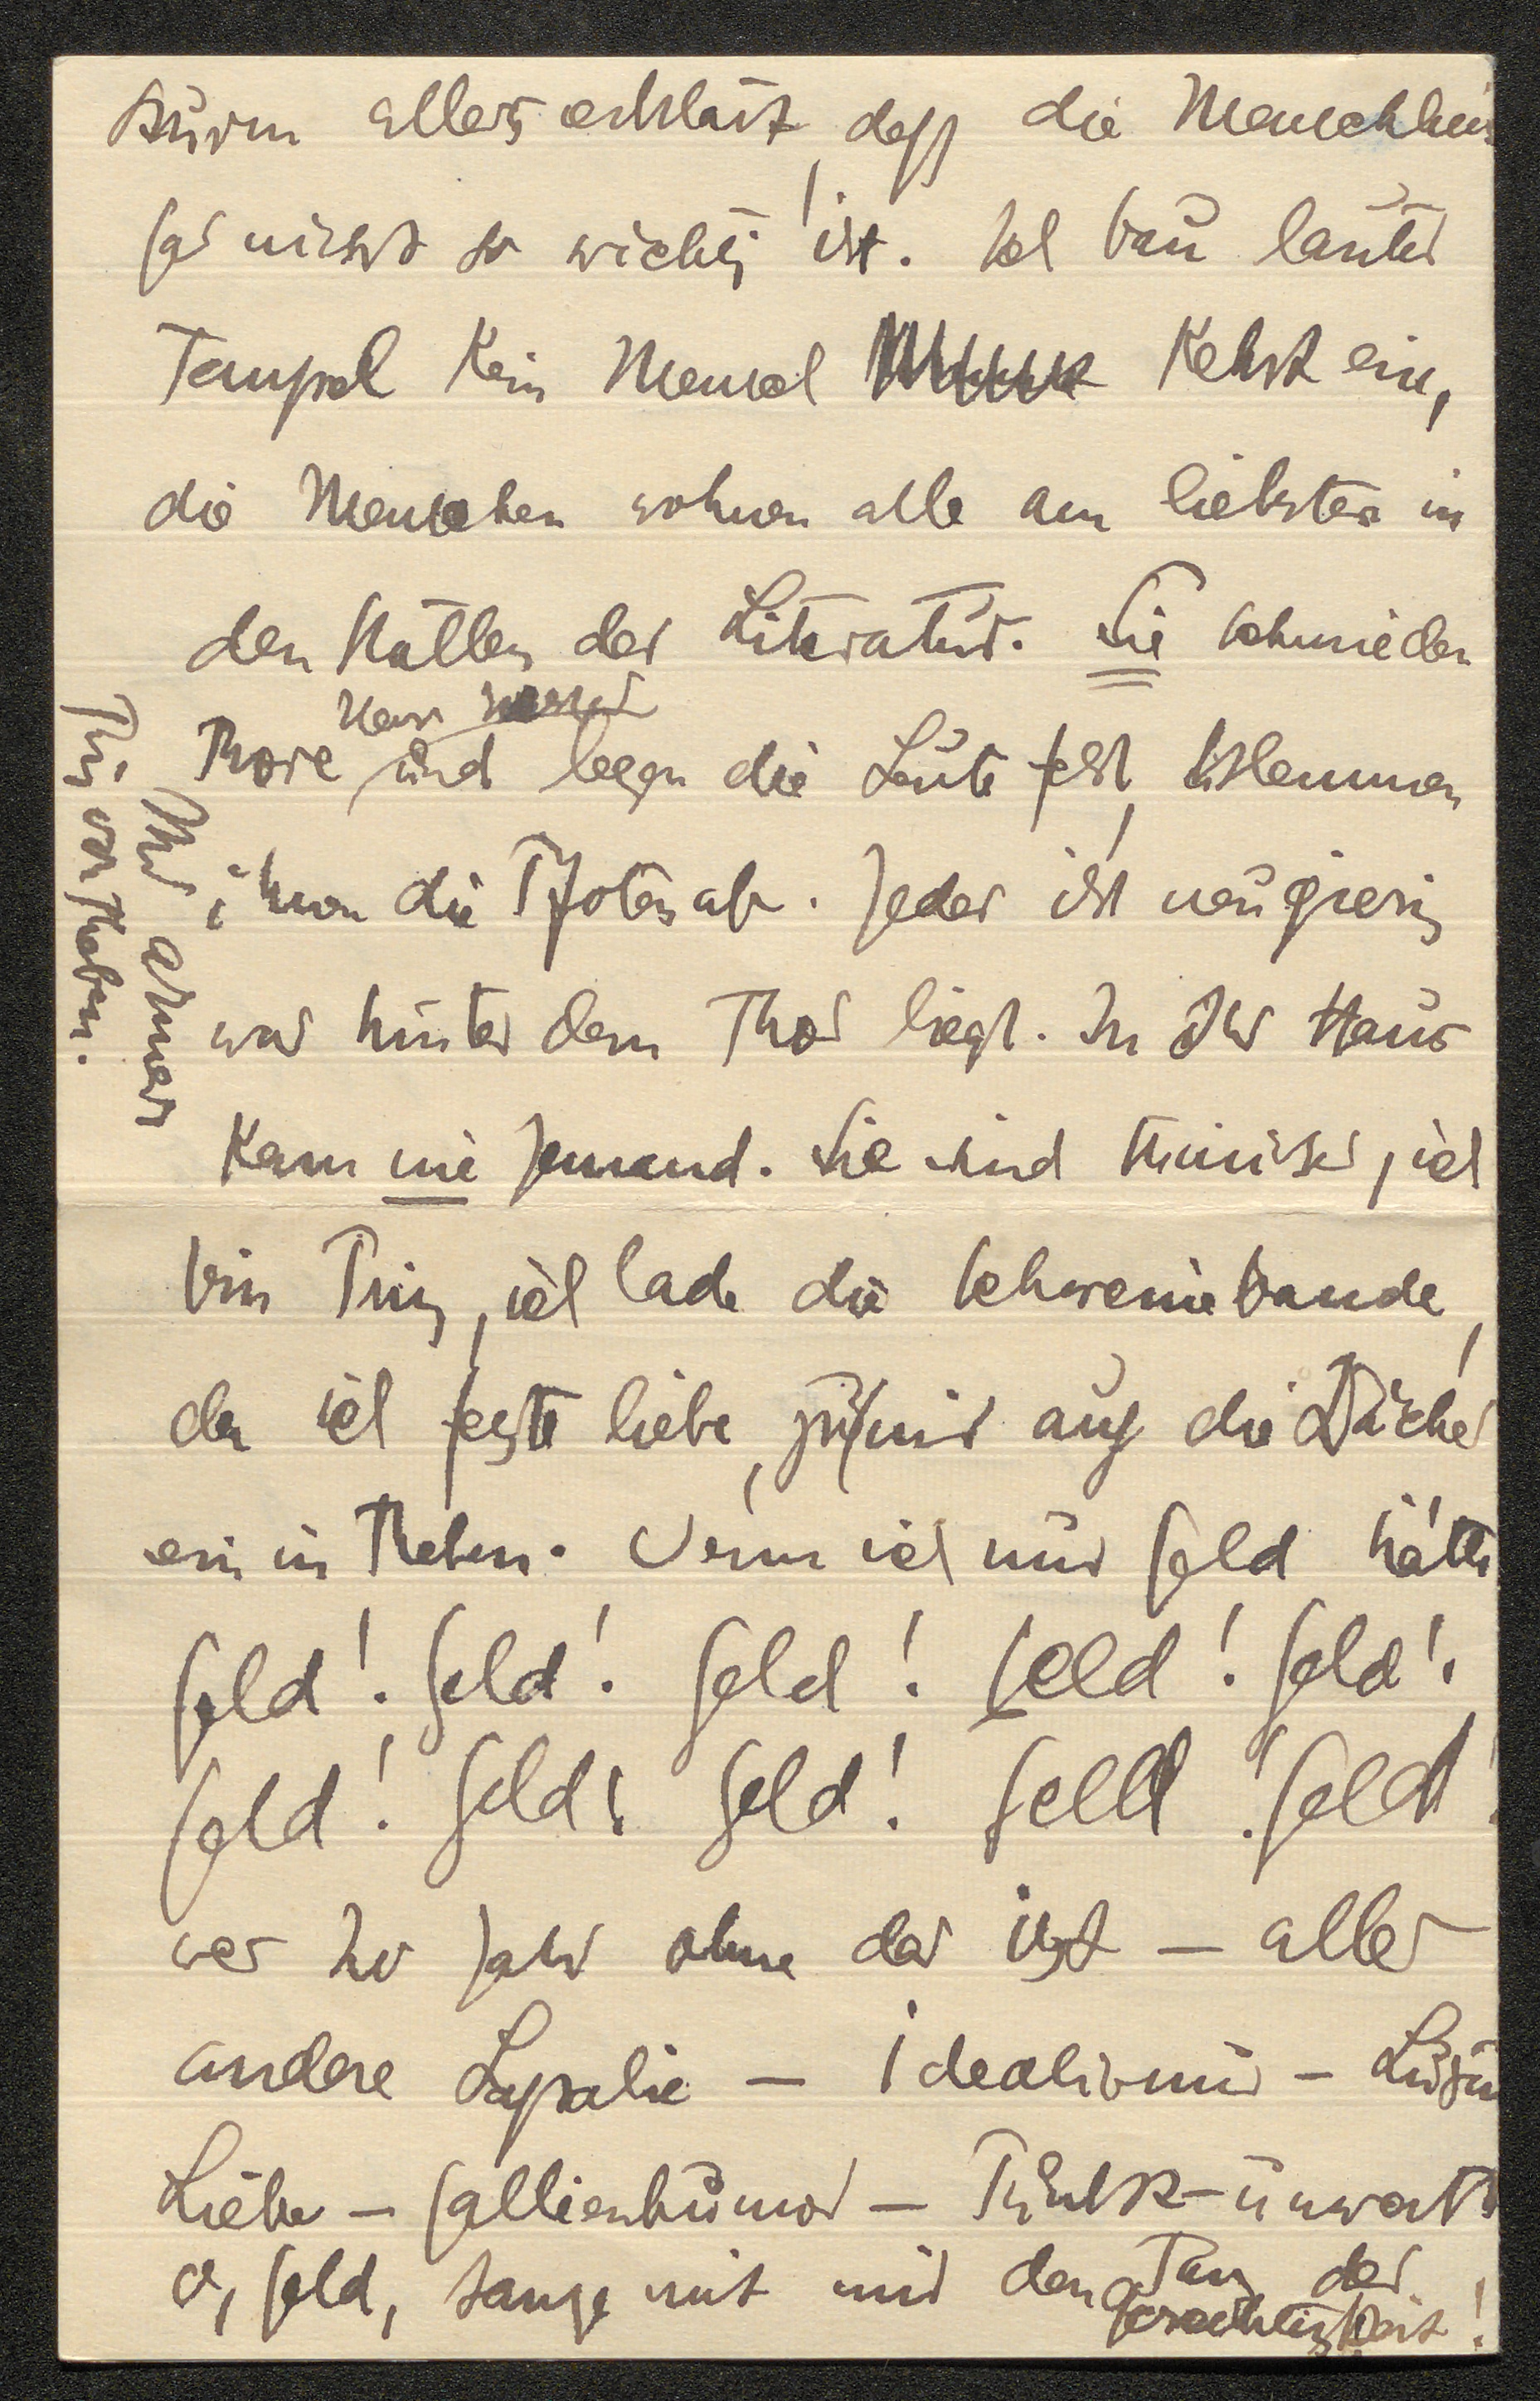 Sturm alles erklärt, daß die Menschheit
gar nicht so wichtig ist. Ich bau lauter
Tempel kein Mensch kehrt ein,
die Menschen wohnen alle am liebsten in
den Ställen der Literatur. Sie schmieden
Thore und legen die Leute fest, klemmen
ihnen die Pfoten ab. Jeder ist neugierig
was hinter dem Thor liegt. In Ihr Haus
kam nie Jemand. Sie sind Minister, ich
bin Prinz, ich lade die Schweinebande,
da ich Feste liebe, zu mir auf die Dächer
ein in Theben. Wenn ich nur Geld hätte
Geld! Geld! Geld! Geld! Geld!
Geld! Geld! Geld! Geld! Geld!
wer so Jahr ohne das ist – alles
andere Lapalie – Idealismus –
Liebe – Gallienhumor –
O, Geld, tanze mit mir den Tanz der
Gerechtigkeit!
Ihr armer
Prinz von Theben.